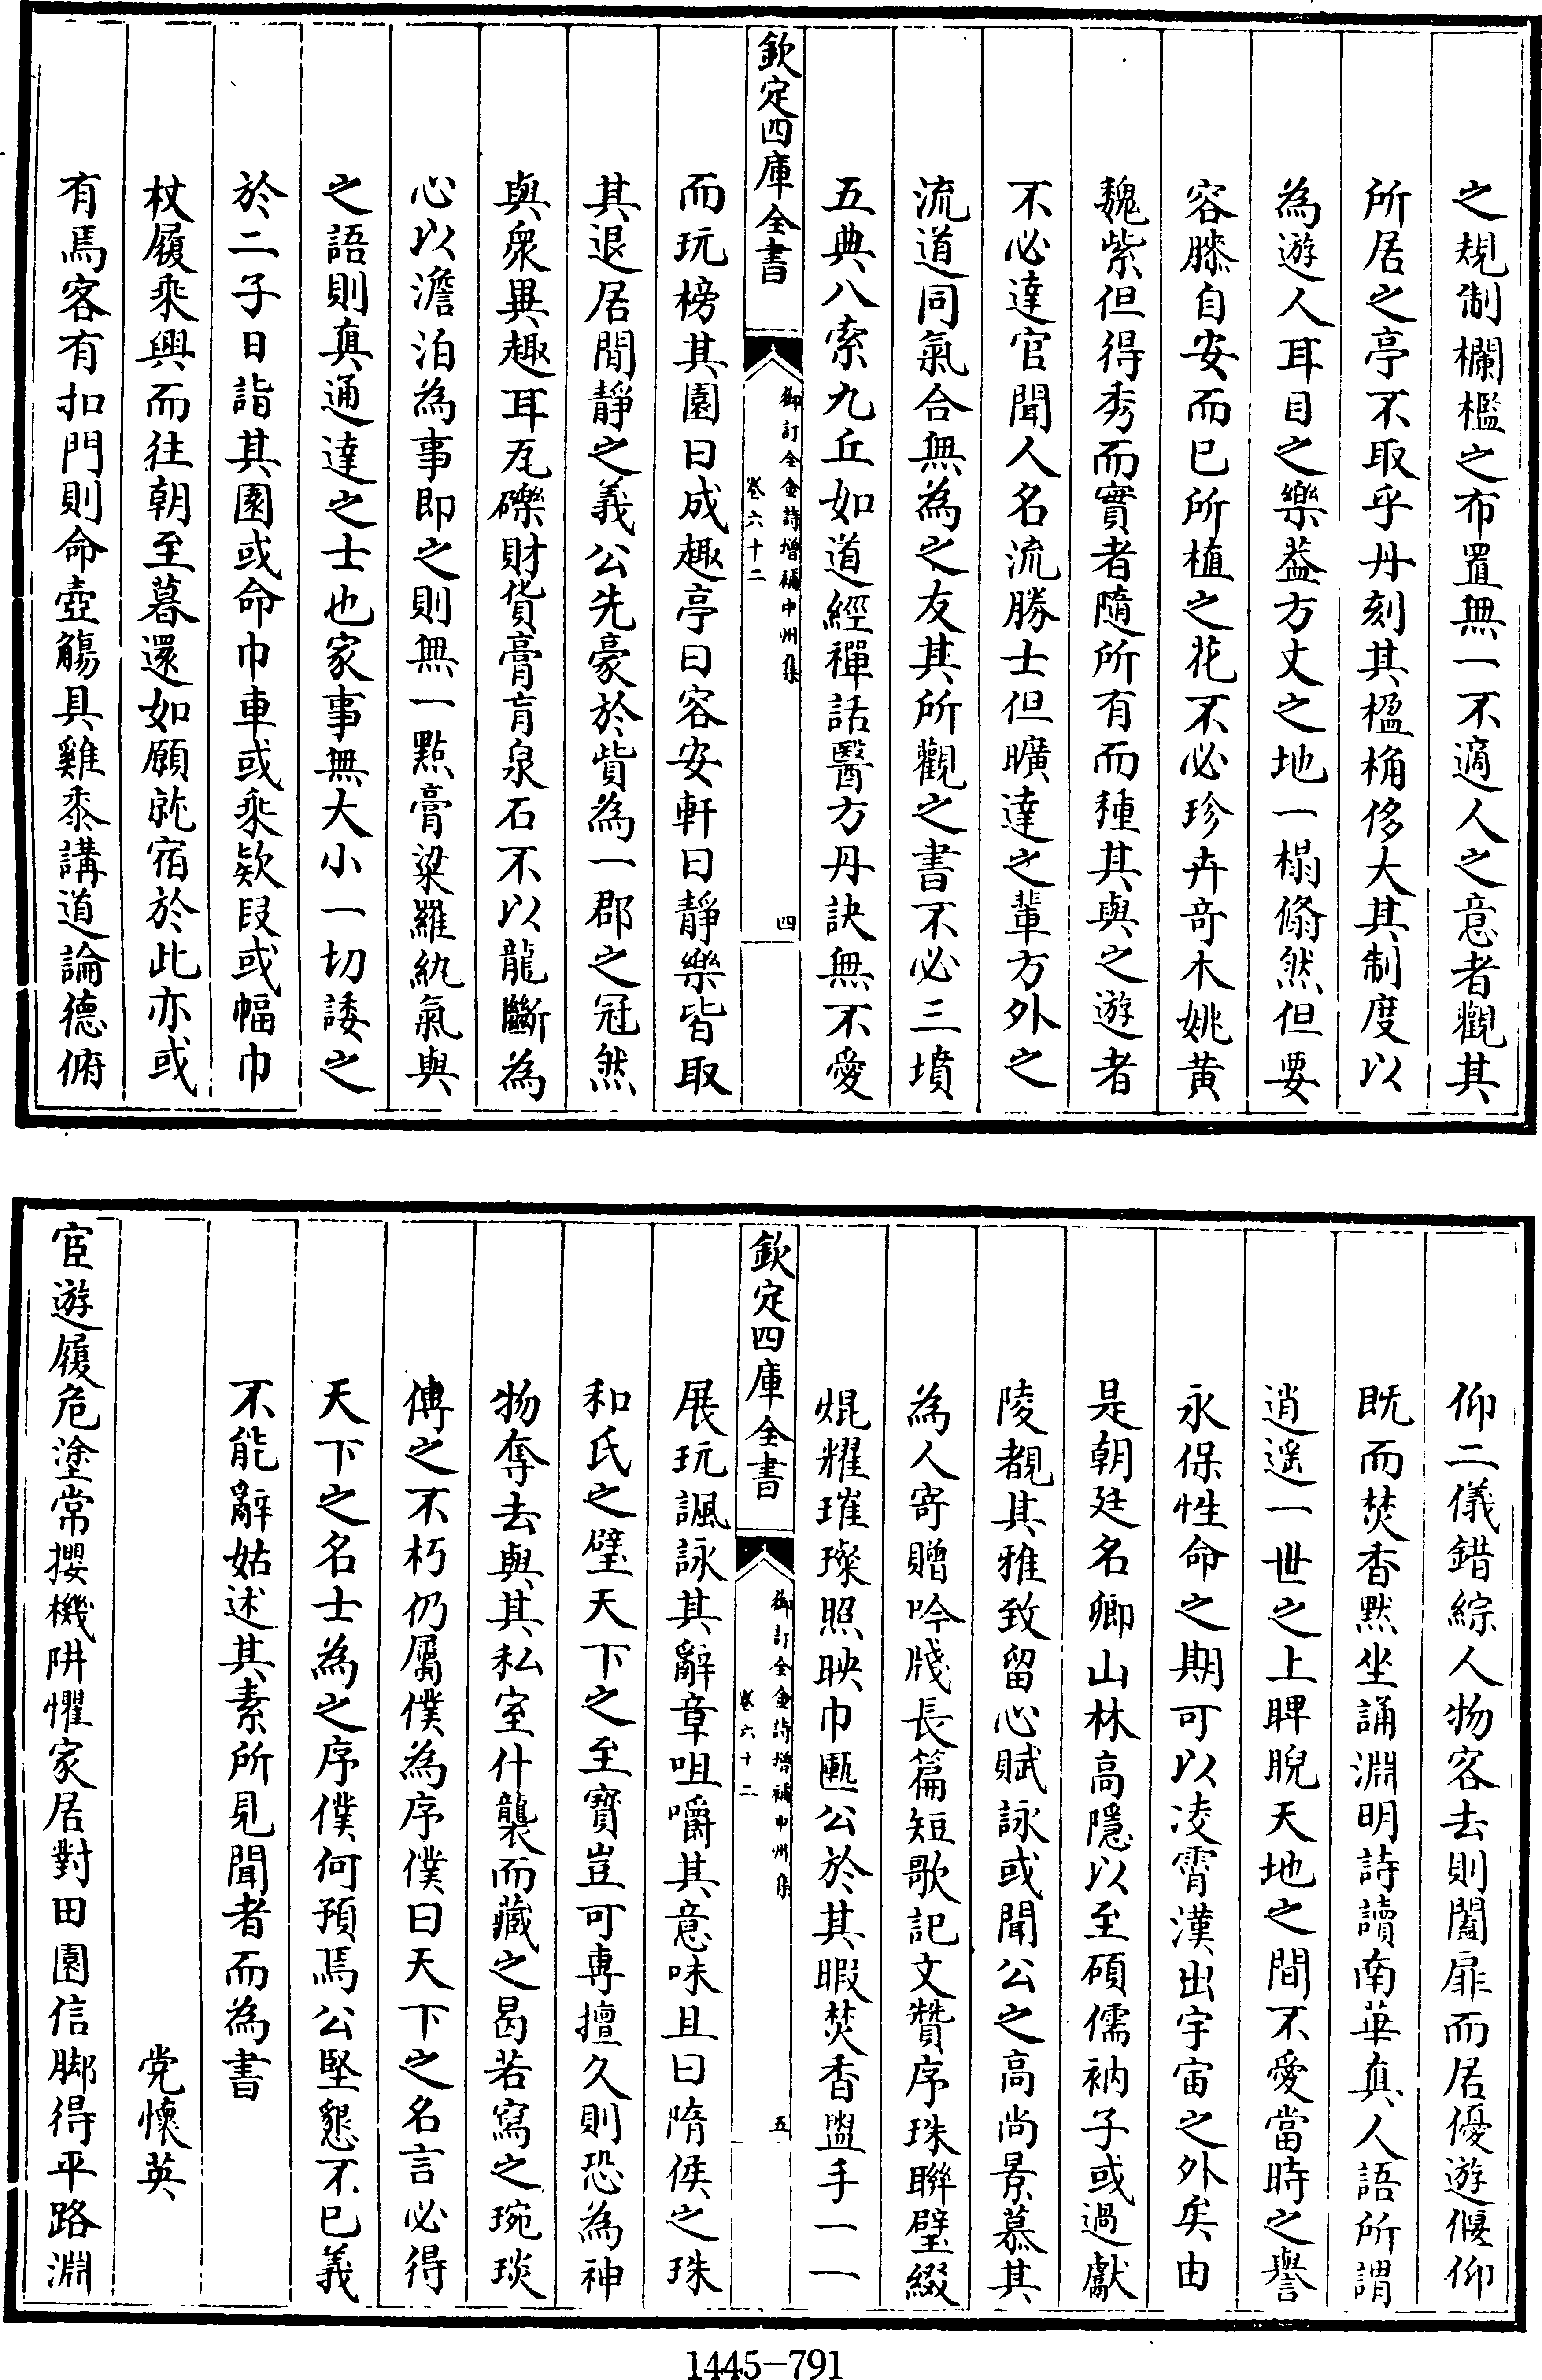 之規制欄檻之布置無一不適人之意者觀其
所居之亭不取乎丹刻其楹桷侈大其制度以
為遊人耳目之樂葢方丈之地一榻翛然但要
容膝自安而已所植之花不必珍卉奇木姚黄
魏紫但得秀而實者隨所有而種其與之遊者
不必達官聞人名流勝士但曠達之輩方外之
流道同氣合無為之友其所觀之書不必三墳
五典八索九丘如道經禪話醫方丹訣無不愛
欽定四庫全書
御訂全金詩增補中州集
卷六十二
四
而玩榜其園曰成趣亭曰容安軒曰靜樂皆取
其退居閒靜之義公先豪於貲為一郡之冠然
與衆異趣耳瓦礫財貨膏肓泉石不以龍斷為
心以澹泊為事即之則無一點膏粱羅紈氣與
之語則真通達之士也家事無大小一切諉之
於二子日詣其園或命巾車或乘欵段或幅巾
杖履乘興而往朝至暮還如願就宿於此亦或
有焉客有扣門則命壺觴具雞黍講道論德俯
仰二儀錯綜人物客去則闔扉而居優遊偃仰
既而焚香默坐誦淵明詩讀南華真人語所謂
逍遥一世之上睥睨天地之間不愛當時之譽
永保性命之期可以凌霄漢出宇宙之外矣由
是朝廷名卿山林高隱以至碩儒衲子或過獻
陵覩其雅致留心賦詠或聞公之高尚景慕其
為人寄贈吟牋長篇短歌記文贊序珠聯璧綴
焜耀璀璨照映巾匭公於其暇焚香盥手一一
欽定四庫全書
御訂全金詩增補中州集
卷六十二
五
展玩諷詠其辭章咀嚼其意味且曰隋侯之珠
和氏之璧天下之至寳豈可專擅久則恐為神
物奪去與其私室什襲而藏之曷若寫之琬琰
傳之不朽仍屬僕為序僕曰天下之名言必得
天下之名士為之序僕何預焉公堅懇不已義
不能辭姑述其素所見聞者而為書
党懷英
宦遊履危塗常攖機阱懼家居對田園信脚得平路淵
1445-791